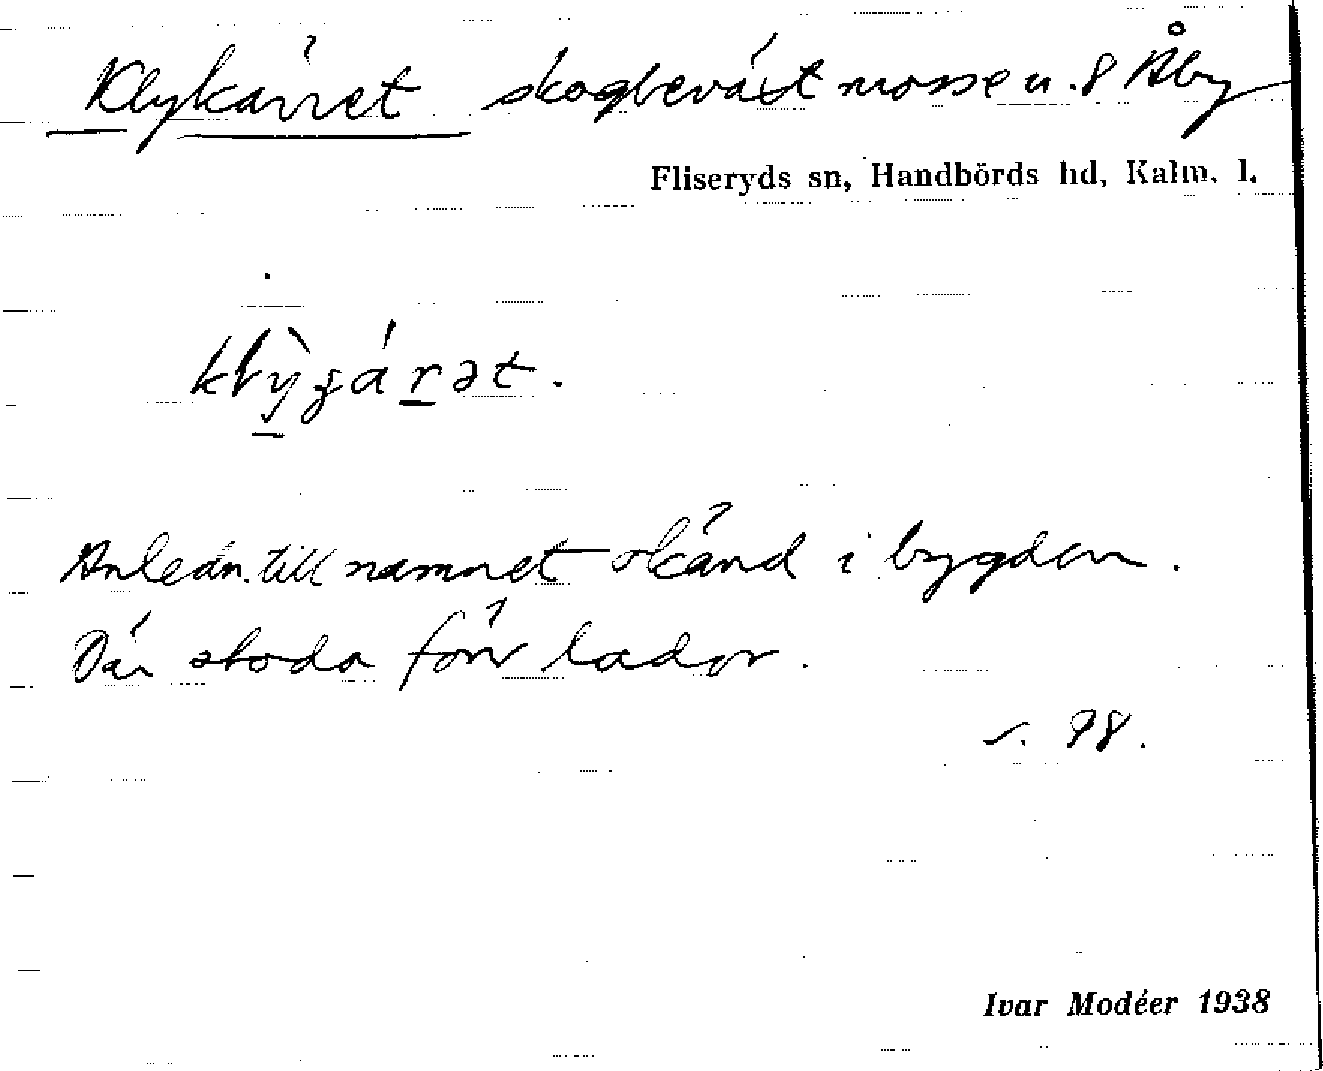 Klykärret skogbeväxt mosse u. 8 Åby
Fliseryds sn, Handbörds hd, Kalm. l.
Anledn. till namnet okänd i bygden.
Där stodo förr lador.
s. 98.
Ivar Modéer 1938